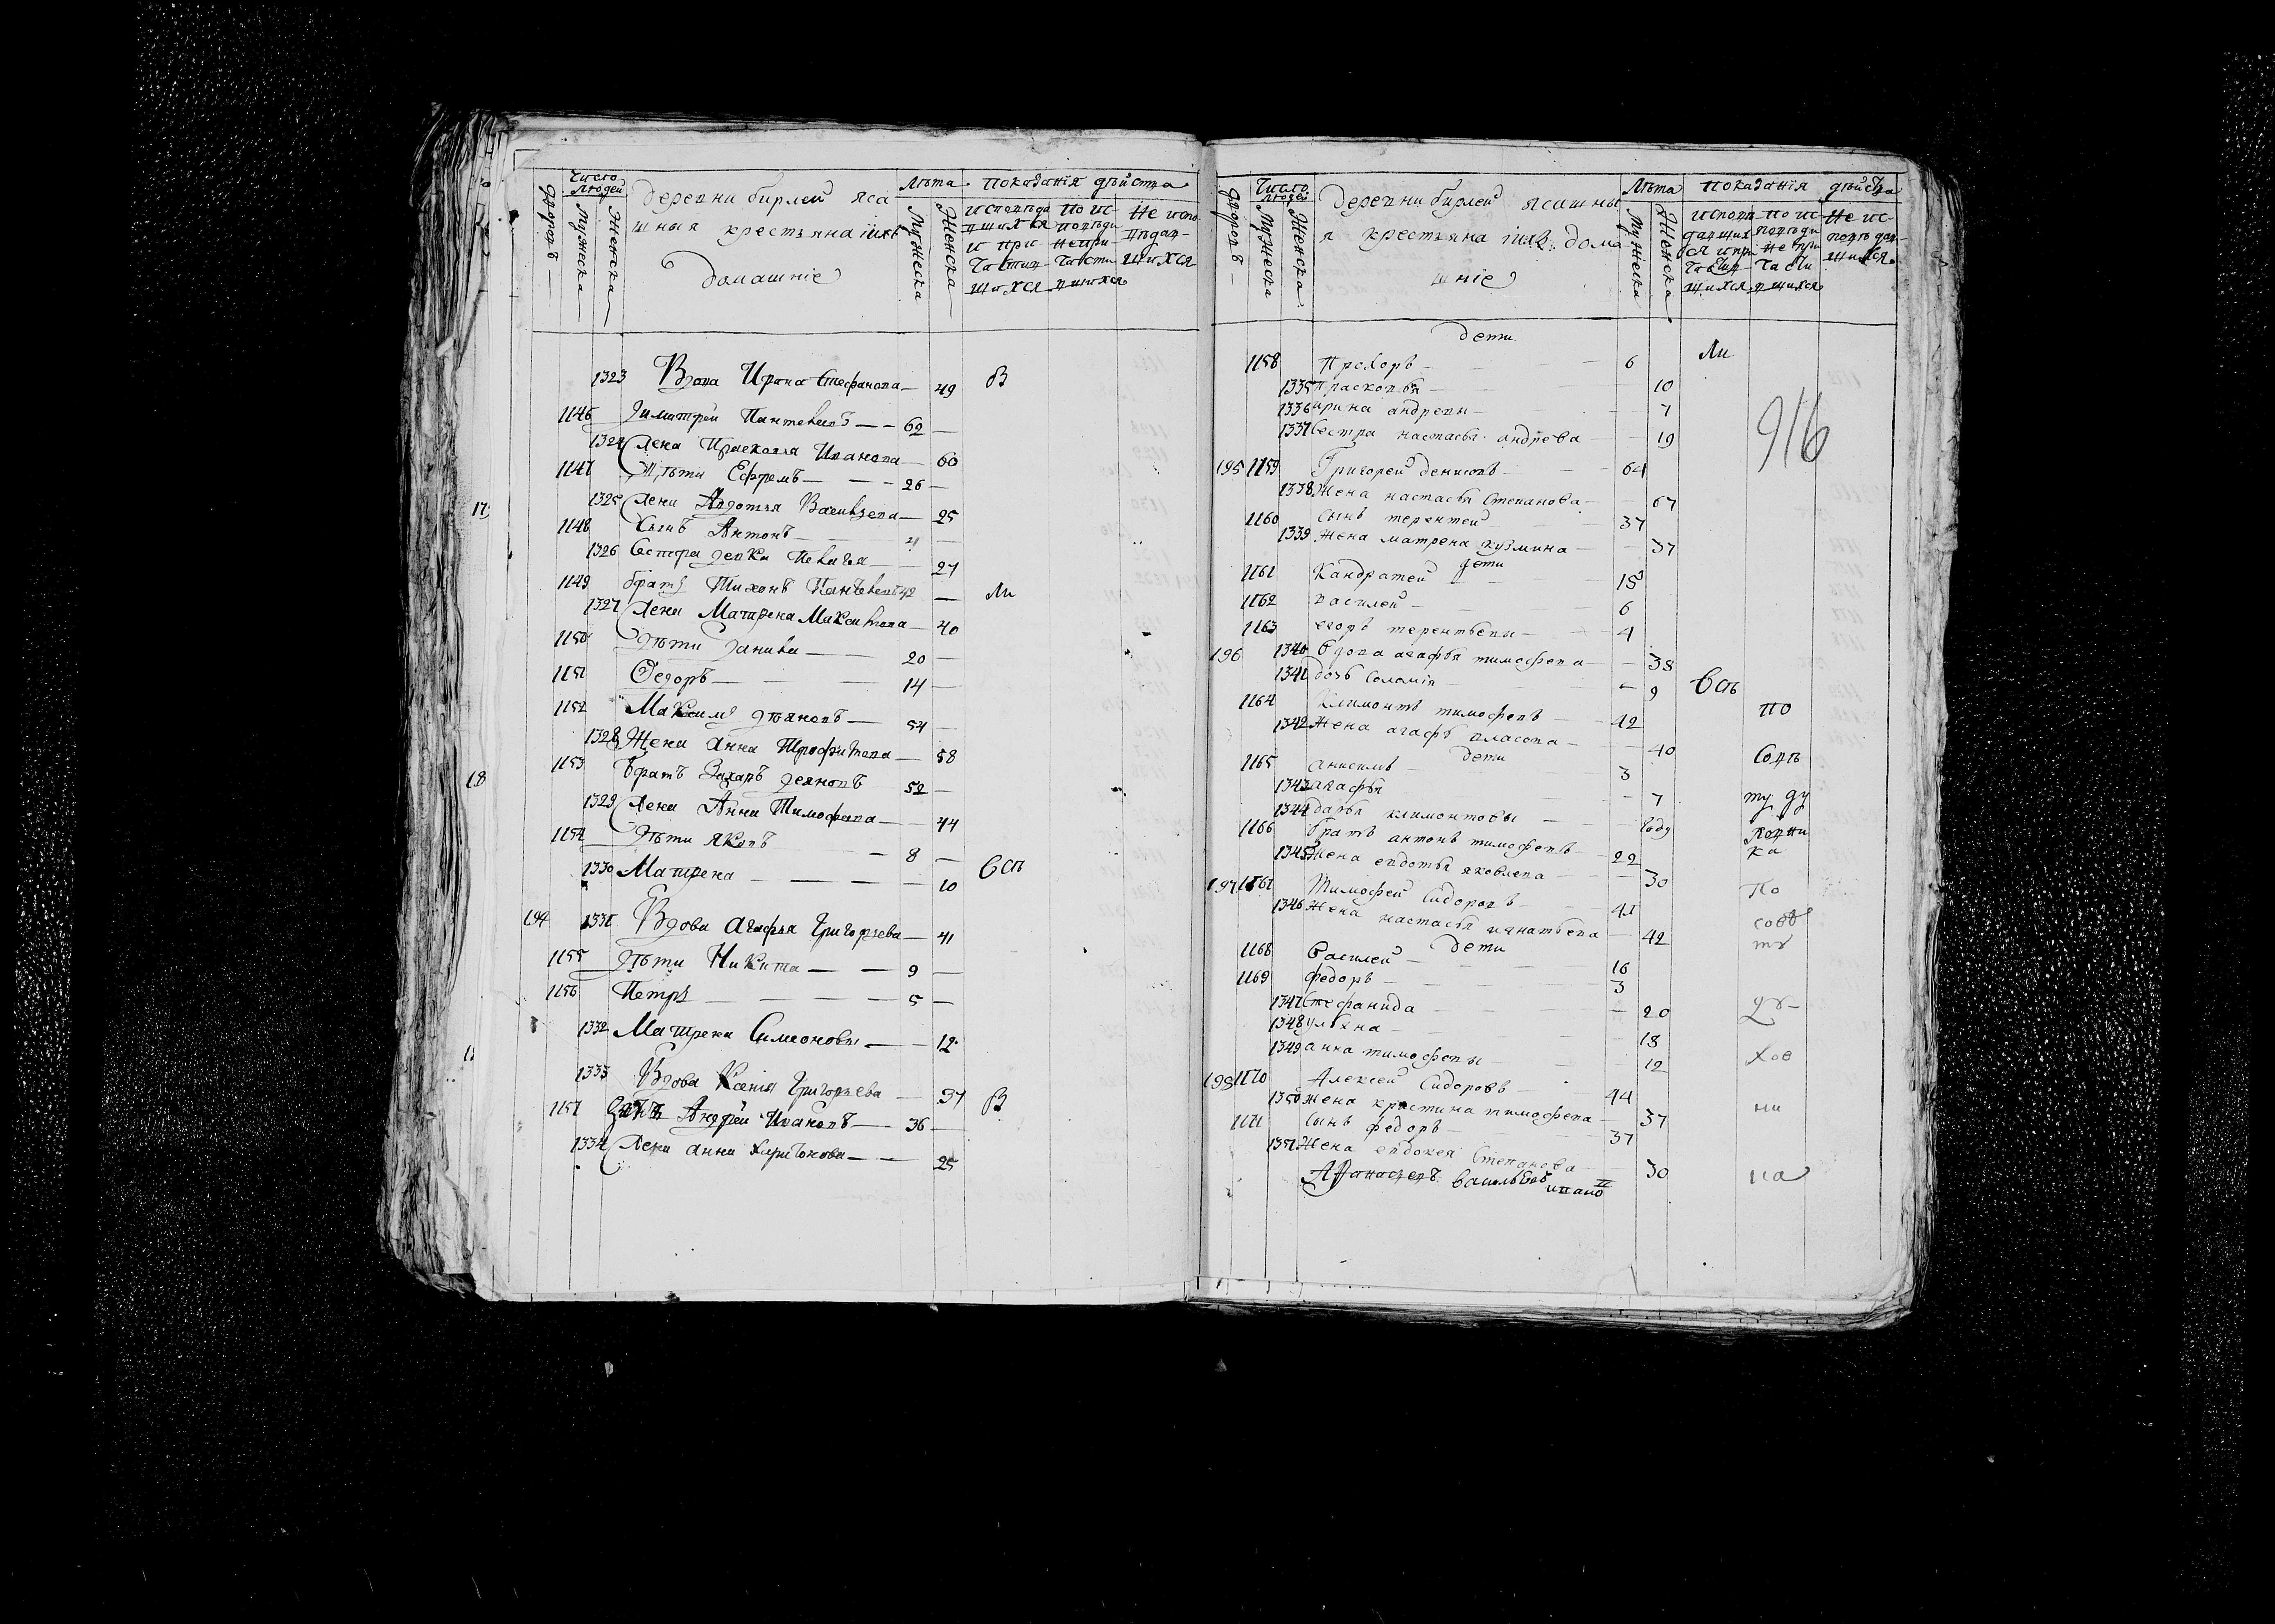 Число людей
Дворовъ
Мужеска
Женска
Деревни бирлей яса
шныя крестьяна ихъ
домашніе
Лѣта
Мужеска
Женска
Показанія дѣйства
исповѣда
вшихся
и при
частив
шихся
по ис
повѣди
непри
части
вшихся
Не испо
вѣдав
шихся
1323 Вдова Ирина Стефанова — 49 В
1146 Димитрей Пантелеевъ — — 62 —
1324 Жена Прасковья Иванова — 60
1147 Дѣти Ефремъ — — — 26 —
1325 Жена Авдотья Васильева — 25
1148 Сынъ Антонъ —
1326 Сестра девка Пелагея — 27
1149 братъ Тихонъ Пантелеевъ 42 — Ли
1327 Жена Матрена Максимова — 40
1150 Дѣти Данила — — 20 —
1151 Федоръ — — — 14 —
1152 Максимъ — 54 —
1328 Жена Анна Трофимова — 58
1153 братъ Захаръ 52 —
1329 Жена Анна Тимофеева — 44
1154 Дѣти Яковъ — 8 —
1330 Матрена — — — — 10 Спь
194 1331 Вдова Агафья Григорьева — 41
1155 Дѣти Никита — — 9 —
1156 Петръ — — — — 5 —
1332 Матрена Симеоновы — — 12
1333 Вдова Ксенія Григорьева — 37 В
1157 Андрей Ивановъ — 36 —
1334 Жена Анна Харитонова — — 25
17
18
Число людей
Дворовъ
Мужеска
Женска
Деревни бирлей ясашны
я крестьяна ихъ дома
шніе
Лѣта
Мужеска
Женска
Показанія дѣйства
исповѣ
давших
ся и при
частив
шихся
по ис
повѣди
не при
части
вшихся
Не ис
повѣдав
шихся
дети
1158 Прохоръ — — 6 Ли
1335 Прасковья — — 10
1336 ирина андреевы — — 7
916
1337 Сестра настасья андрева — — 19
195 1159 Григорей денисовъ — — 64
1338 Жена настасья Степанова — — 67
1160 Сынъ терентей — 37
1339 Жена матрена кузмина — — 37
дети
1161 Кандратей — — 15
1162 василей — — 6
1163 егоръ терентьевы — — 4
196 1340 вдова агафья тимофева — — 38
1341 дочь Соломія — — 9 Спь
1164 Климонтъ тимофевъ — — 42 по
1342 Жена агафья власова — — 40
дети
1165 анисимъ — — 3
1343 агафья — — 7
1344 дарья климонтовы — — году
1166 братъ антонъ тимофевъ — 22
1345 Жена евдотья яковлева — — 30
197 1167 Тимофей Сидоровъ — — 41
1346 Жена настасья игнатьева — 42
дети
1168 Василей — — 16
1169 федоръ — — 3
1347 Стефанида — — 20
1348 ульяна — — 18
1349 анна тимофевы — — 12
198 1170 Алексей Сидоровъ — 44
1350 Жена кристина тимофева — 37
1171 Сынъ федоръ — — 37
1351 Жена евдокея Степанова — 30
по
ду
ка
По
дѣ
хов
ни
ка